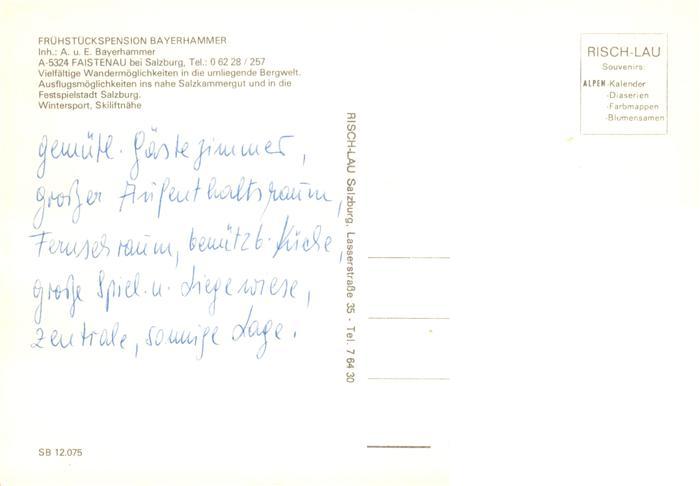 FRÜHSTÜCKSPENSION BAYERHAMMER
Inh.: A. u. E. Bayerhammer
A-5324 FAISTENAU bei Salzburg, Tel.: 0 62 28 / 257
Vielfältige Wandermöglichkeiten in die umliegende Bergwelt.
Ausflugsmöglichkeiten ins nahe Salzkammergut und in die
Festspielstadt Salzburg.
Wintersport, Skiliftnähe
gemütl. Gästezimmer,
großer Aufenthaltsraum,
Fernsehraum, benützb. Küche,
große Spiel- u. Liegewiese,
zentrale, sonnige Lage.
SB 12.075
RISCH-LAU Salzburg, Lasserstraße 35 · Tel. 7 64 30
RISCH-LAU
Souvenirs:
ALPEN-Kalender
-Diaserien
-Farbmappen
-Blumensamen